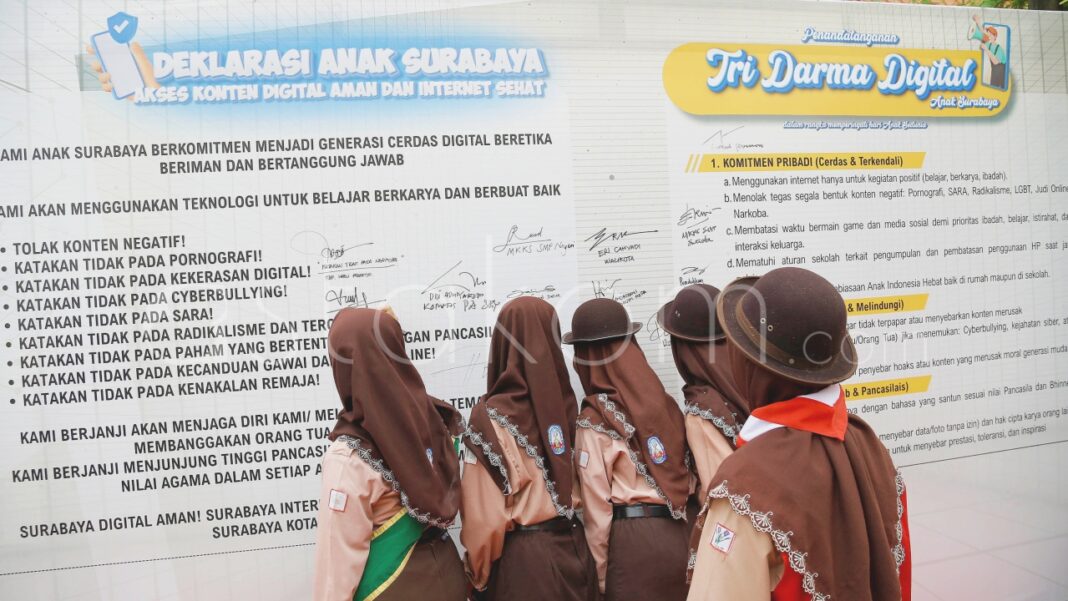 DEKLARASI ANAK SURABAYA
AKSES KONTEN DIGITAL AMAN DAN INTERNET SEHAT
AMI ANAK SURABAYA BERKOMITMEN MENJADI GENERASI CERDAS DIGITAL BERETIKA
BERIMAN DAN BERTANGGUNG JAWAB
AMI AKAN MENGGUNAKAN TEKNOLOGI UNTUK BELAJAR BERKARYA DAN BERBUAT BAIK
• TOLAK KONTEN NEGATIF!
• KATAKAN TIDAK PADA PORNOGRAFI!
• KATAKAN TIDAK PADA KEKERASAN DIGITAL!
• KATAKAN TIDAK PADA CYBERBULLYING!
• KATAKAN TIDAK PADA SARA!
• KATAKAN TIDAK PADA RADIKALISME DAN
• KATAKAN TIDAK PADA PAHAM YANG PANCASILA
• KATAKAN TIDAK PADA KECANDUAN GAWAI
• KATAKAN TIDAK PADA KENAKALAN REMAJA!
KAMI BERJANJI AKAN MENJAGA DIRI KAMI/
MEMBANGGAKAN ORANG
KAMI BERJANJI MENJUNJUNG TINGGI
NILAI AGAMA DALAM SETIAP
SURABAYA DIGITAL AMAN! SURABAYA
SURABAYA
MKKS SMP Negeri
ERI CAHYADI
WALIKOTA
Penandatanganan
Tri Darma Digital
Anak Surabaya
dalam rangka memperingati hari Anak Sedunia
1. KOMITMEN PRIBADI (Cerdas & Terkendali)
a. Menggunakan internet hanya untuk kegiatan positif (belajar, berkarya, ibadah).
b. Menolak tegas segala bentuk konten negatif: Pornografi, SARA, Radikalisme, LGBT, Judi Online
Narkoba.
c. Membatasi waktu bermain game dan media sosial demi prioritas ibadah, belajar, istirahat, da
interaksi keluarga.
d. Mematuhi aturan sekolah terkait pengumpulan dan pembatasan penggunaan HP saat ja
ebiasaan Anak Indonesia Hebat baik di rumah maupun di sekolah.
& Melindungi)
tidak terpapar atau menyebarkan konten merusak
Orang Tua) jika menemukan: Cyberbullying, kejahatan siber, at
penyebar hoaks atau konten yang merusak moral generasi muda
& Pancasilais)
dengan bahasa yang santun sesuai nilai Pancasila dan Bhinne
menyebar data/foto tanpa izin) dan hak cipta karya orang lai
untuk menyebar prestasi, toleransi, dan inspirasi